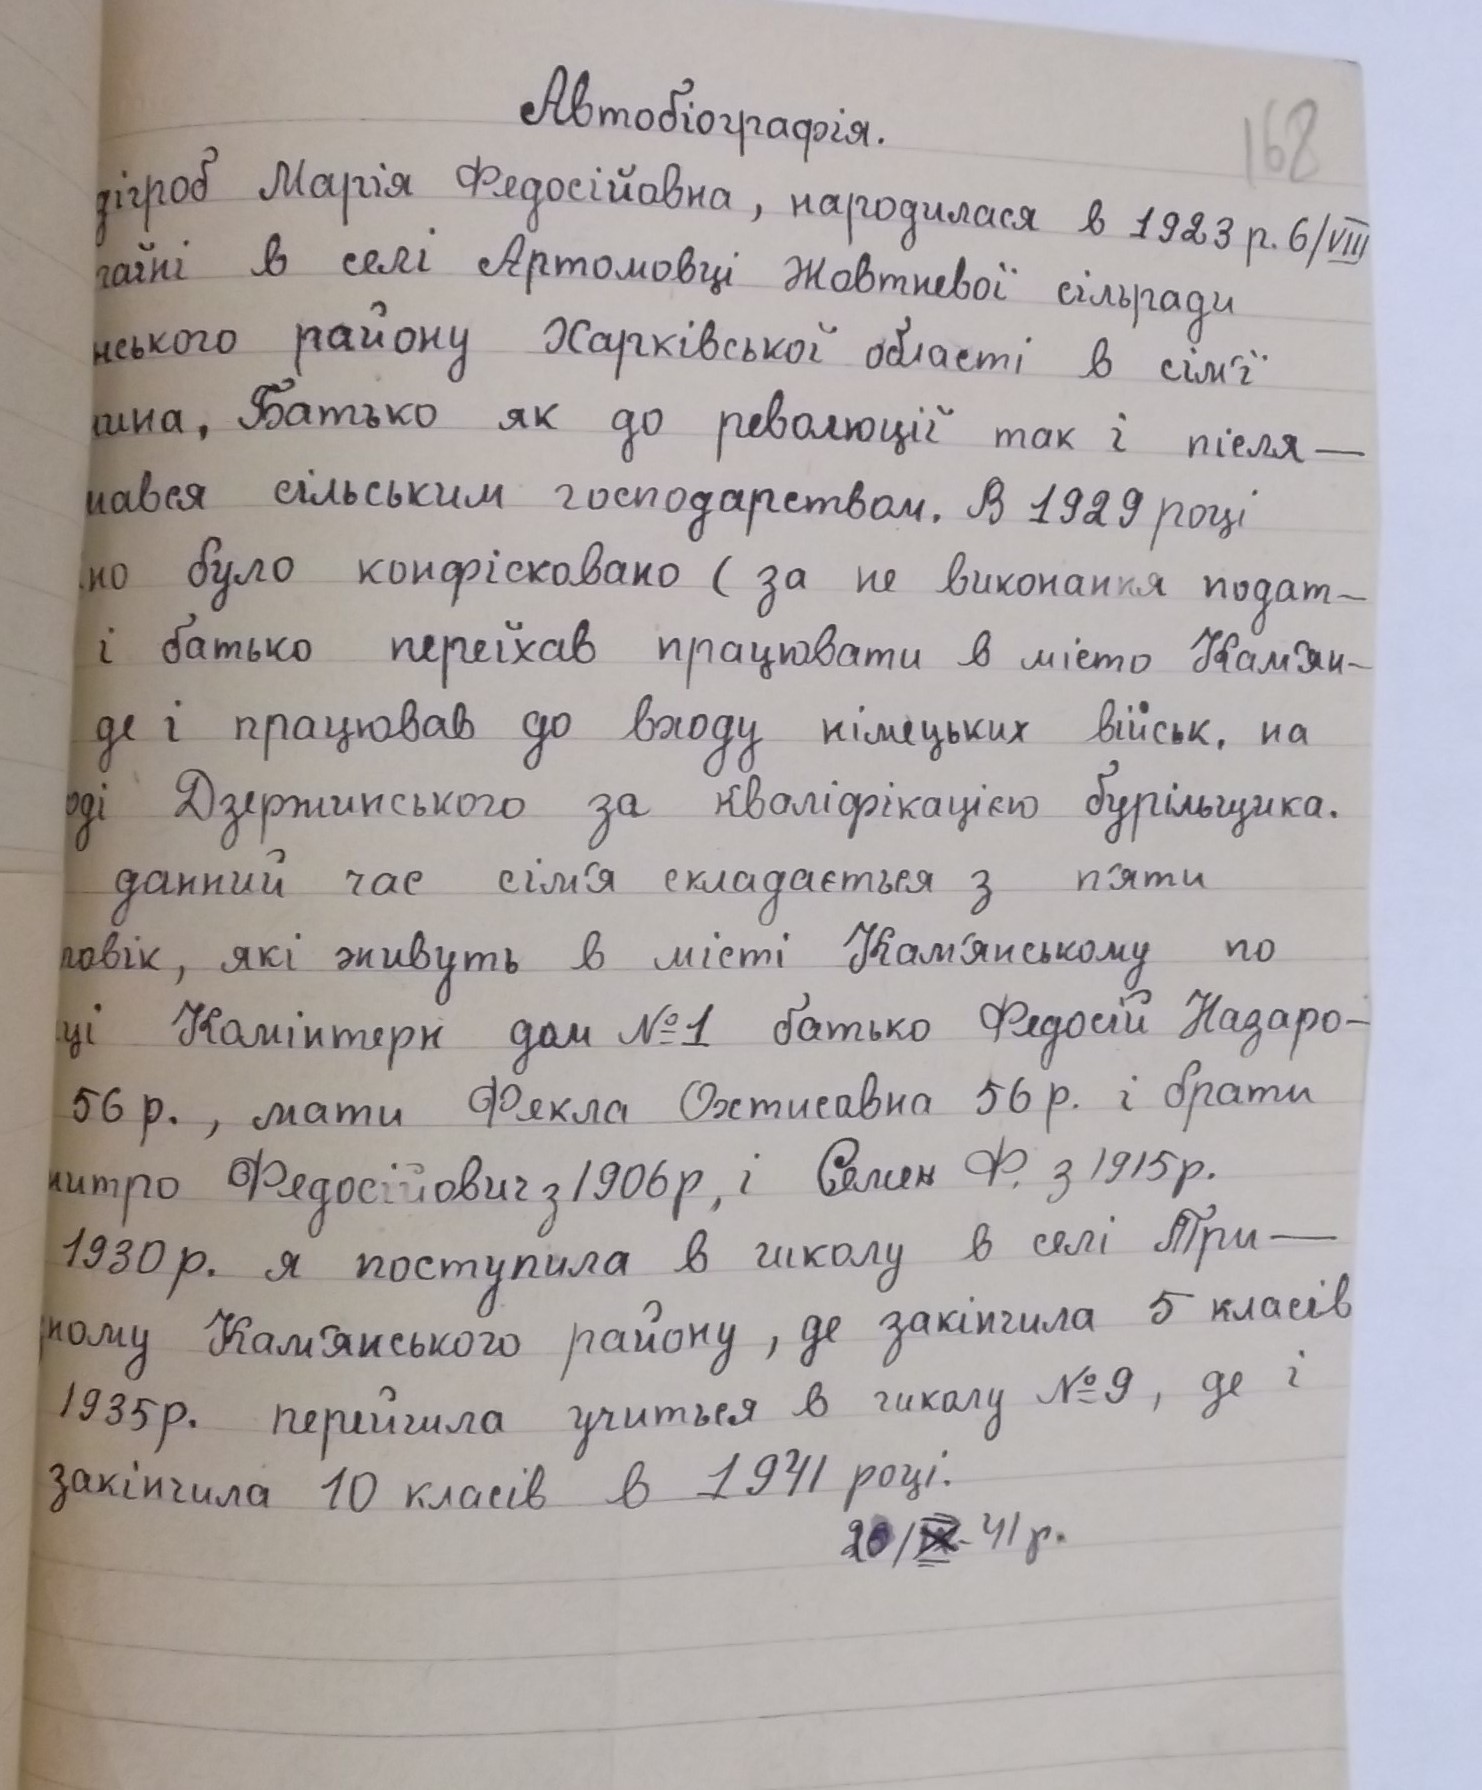 Автобіографія.
168
дігроб Марія Федосійовна, народилася в 1923 р. 6/VIII
раїні в селі Артомовці Жовтневої сільради
нського району Харківської області в сім'ї
ина, Батько як до революції так і після —
мався сільським господарством. В 1929 році
но було конфісковано ( за не виконання подат-
і батько переїхав працювати в місто Кам'ян-
де і працював до входу німецьких військ. на
оді Дзержинського за кваліфікацією бурільщика.
данний час сім'я складається з п'яти
ловік, які живуть в місті Кам'янському по
ці Комінтерн дом №1 батько Федосій Назаро-
56 р., мати Фекла Охтисовна 56 р. і брати
митро Федосійович з 1906 р, і Семен Ф. з 1915 р.
1930 р. я поступила в школу в селі Три —
ному Кам'янського району, де закінчила 5 класів
1935 р. перейшла учиться в школу №9, де і
закінчила 10 класів в 1941 році.
20/IX- 41 р.